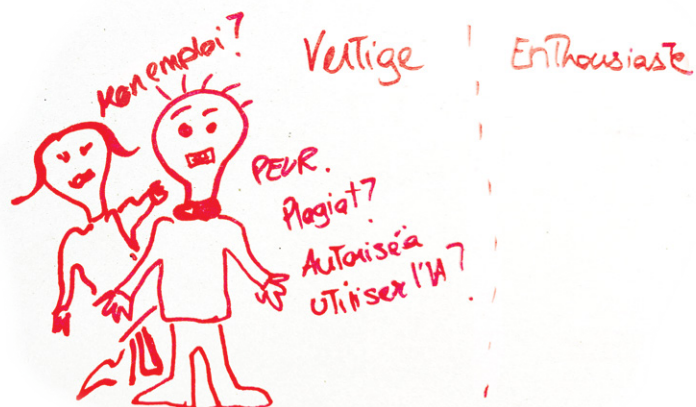 Mon emploi?
Vertige
Enthousiaste
PEUR.
Plagiat?
Autorisé à
utiliser l'IA?